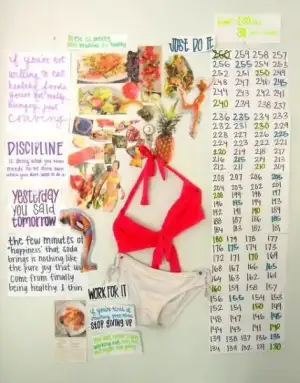 JUST DO IT.
if you're not
willing to eat
healthy foods
you're not really
hungry, just
craving
DISCIPLINE
is doing what you know
needs to be done even
when you don't want to do it
yesterday
you said
tomorrow
the few minutes of
happiness that food
brings is nothing like
the pure joy that will
come from finally
being healthy & thin
WORK FOR IT
if you're tired of
starting over again
STOP GIVING UP
260 259 258 257
256 255 254 253
252 251 250 249
248 247 246 245
244 243 242 241
240 239 238 237
236 235 234 233
232 231 230 229
228 227 226 225
224 223 222 221
220 219 218 217
216 215 214 213
212 211 210 209
208 207 206 205
204 203 202 201
200 199 198 197
196 195 194 193
192 191 190 189
188 187 186 185
180 179 178 177
176 175 174 173
172 171 170 169
168 167 166 165
164 163 162 161
160 159 158 157
156 155 154 153
152 151 150 149
148 147 146 145
144 143 141 140
139 138 137 136 135
134 133 132 131 130